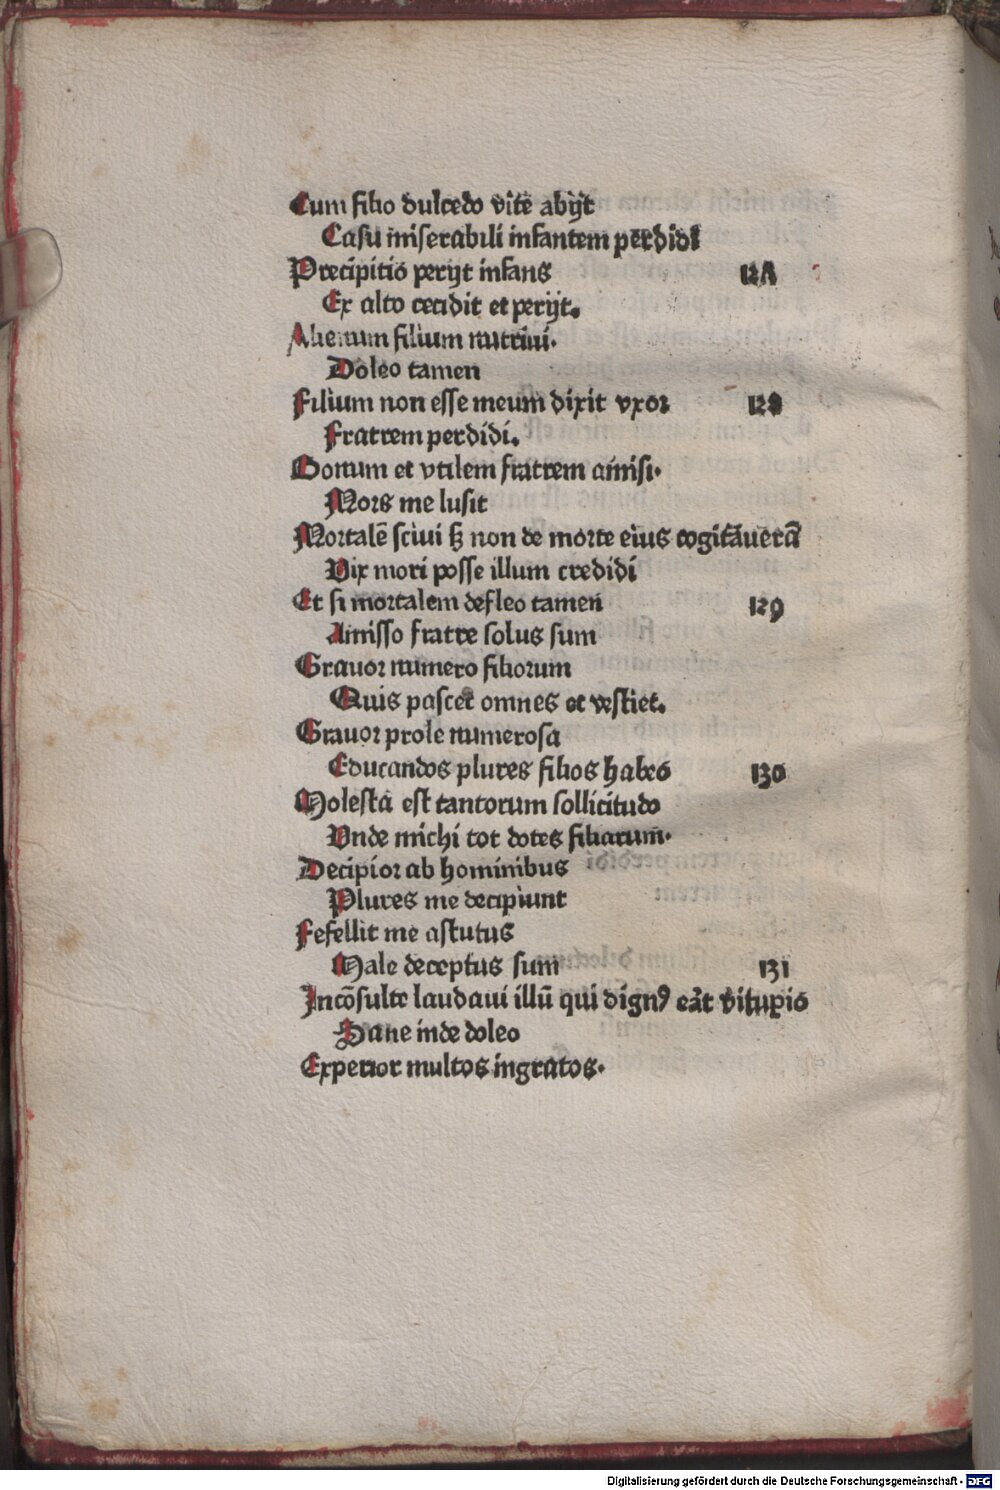 Cum filio dulcedo vite abijt
Casu miserabili infantem perdidi
Precipitio perijt infans 127
Ex alto cecidit et perijt.
Alienum filium nutriui.
Doleo tamen
Filium non esse meum dixit vxor 128
Fratrem perdidi.
Bonum et vtilem fratrem amisi.
Mors me lusit
Mortalē sciui sꝫ non de morte eius cogitāuerā
Vix mori posse illum credidi
Et si mortalem defleo tamen 129
Amisso fratre solus sum
Grauor numero filiorum
Quis pascet omnes et vestiet.
Grauor prole numerosa
Educandos plures filios habeo 130
Molesta est tantorum sollicitudo
Vnde michi tot dotes filiarum.
Decipior ab hominibus
Plures me decipiunt
Fefellit me astutus
Male deceptus sum 131
Incōsulte laudaui illū qui dignꝰ erāt vitupio
Sane inde doleo
Experior multos ingratos.
Digitalisierung gefördert durch die Deutsche Forschungsgemeinschaft - DFG